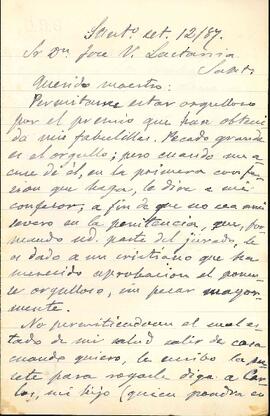 Santo set. 12/87.
Sr Dn Jose V. Lastarria
Querido maestro:
Permitame estar orgulloso
por el premio que han obteni
do mis fabulillas. Pecado grande
es el orgullo; pero cuando me a
cuse de él, en la primera confe
sion que haga, le diré a mi
confesor, a fin de que no sea mui
severo en la penitencia, que, for
mando ud. parte del jurado, le
es dado a un cristiano que ha
merecido aprobacion el poner
se orgulloso, sin pecar mayor
mente.
No permitiendome el mal es
tado de mi salud salir de casa
cuando quiero, le escribo la pre
sente para rogarle diga a Car
los, mi hijo (quien pondra en